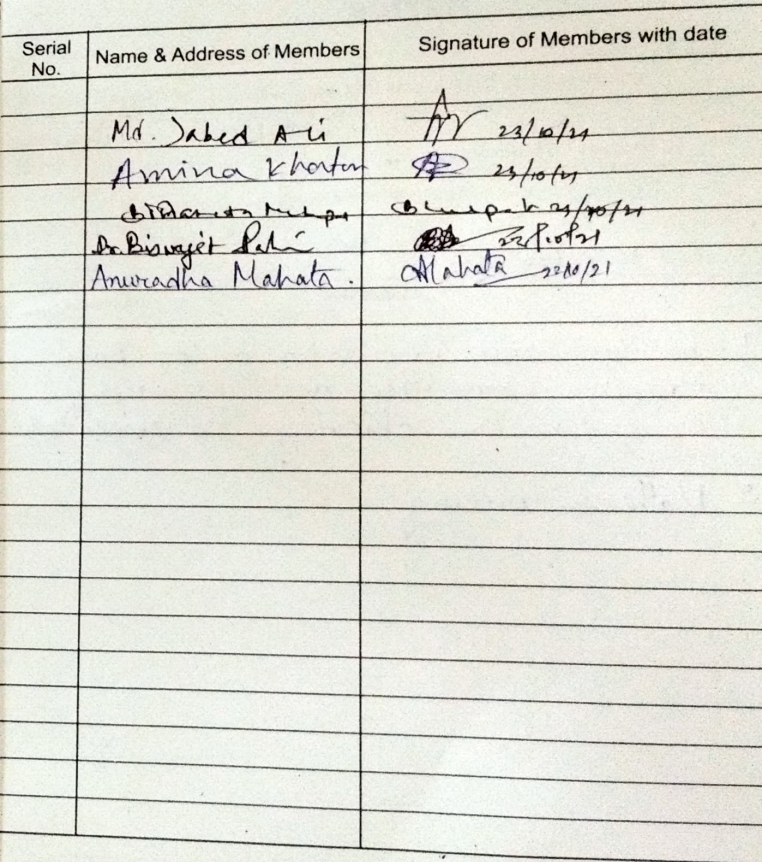 Serial No. Name & Address of Members Signature of Members with date
Md. Jabed Ali 23/10/21
Amina Khaton 23/10/21
23/10/21
Dr. Biswajit 22/10/21
Anuradha Mahata. AMahata 22/10/21